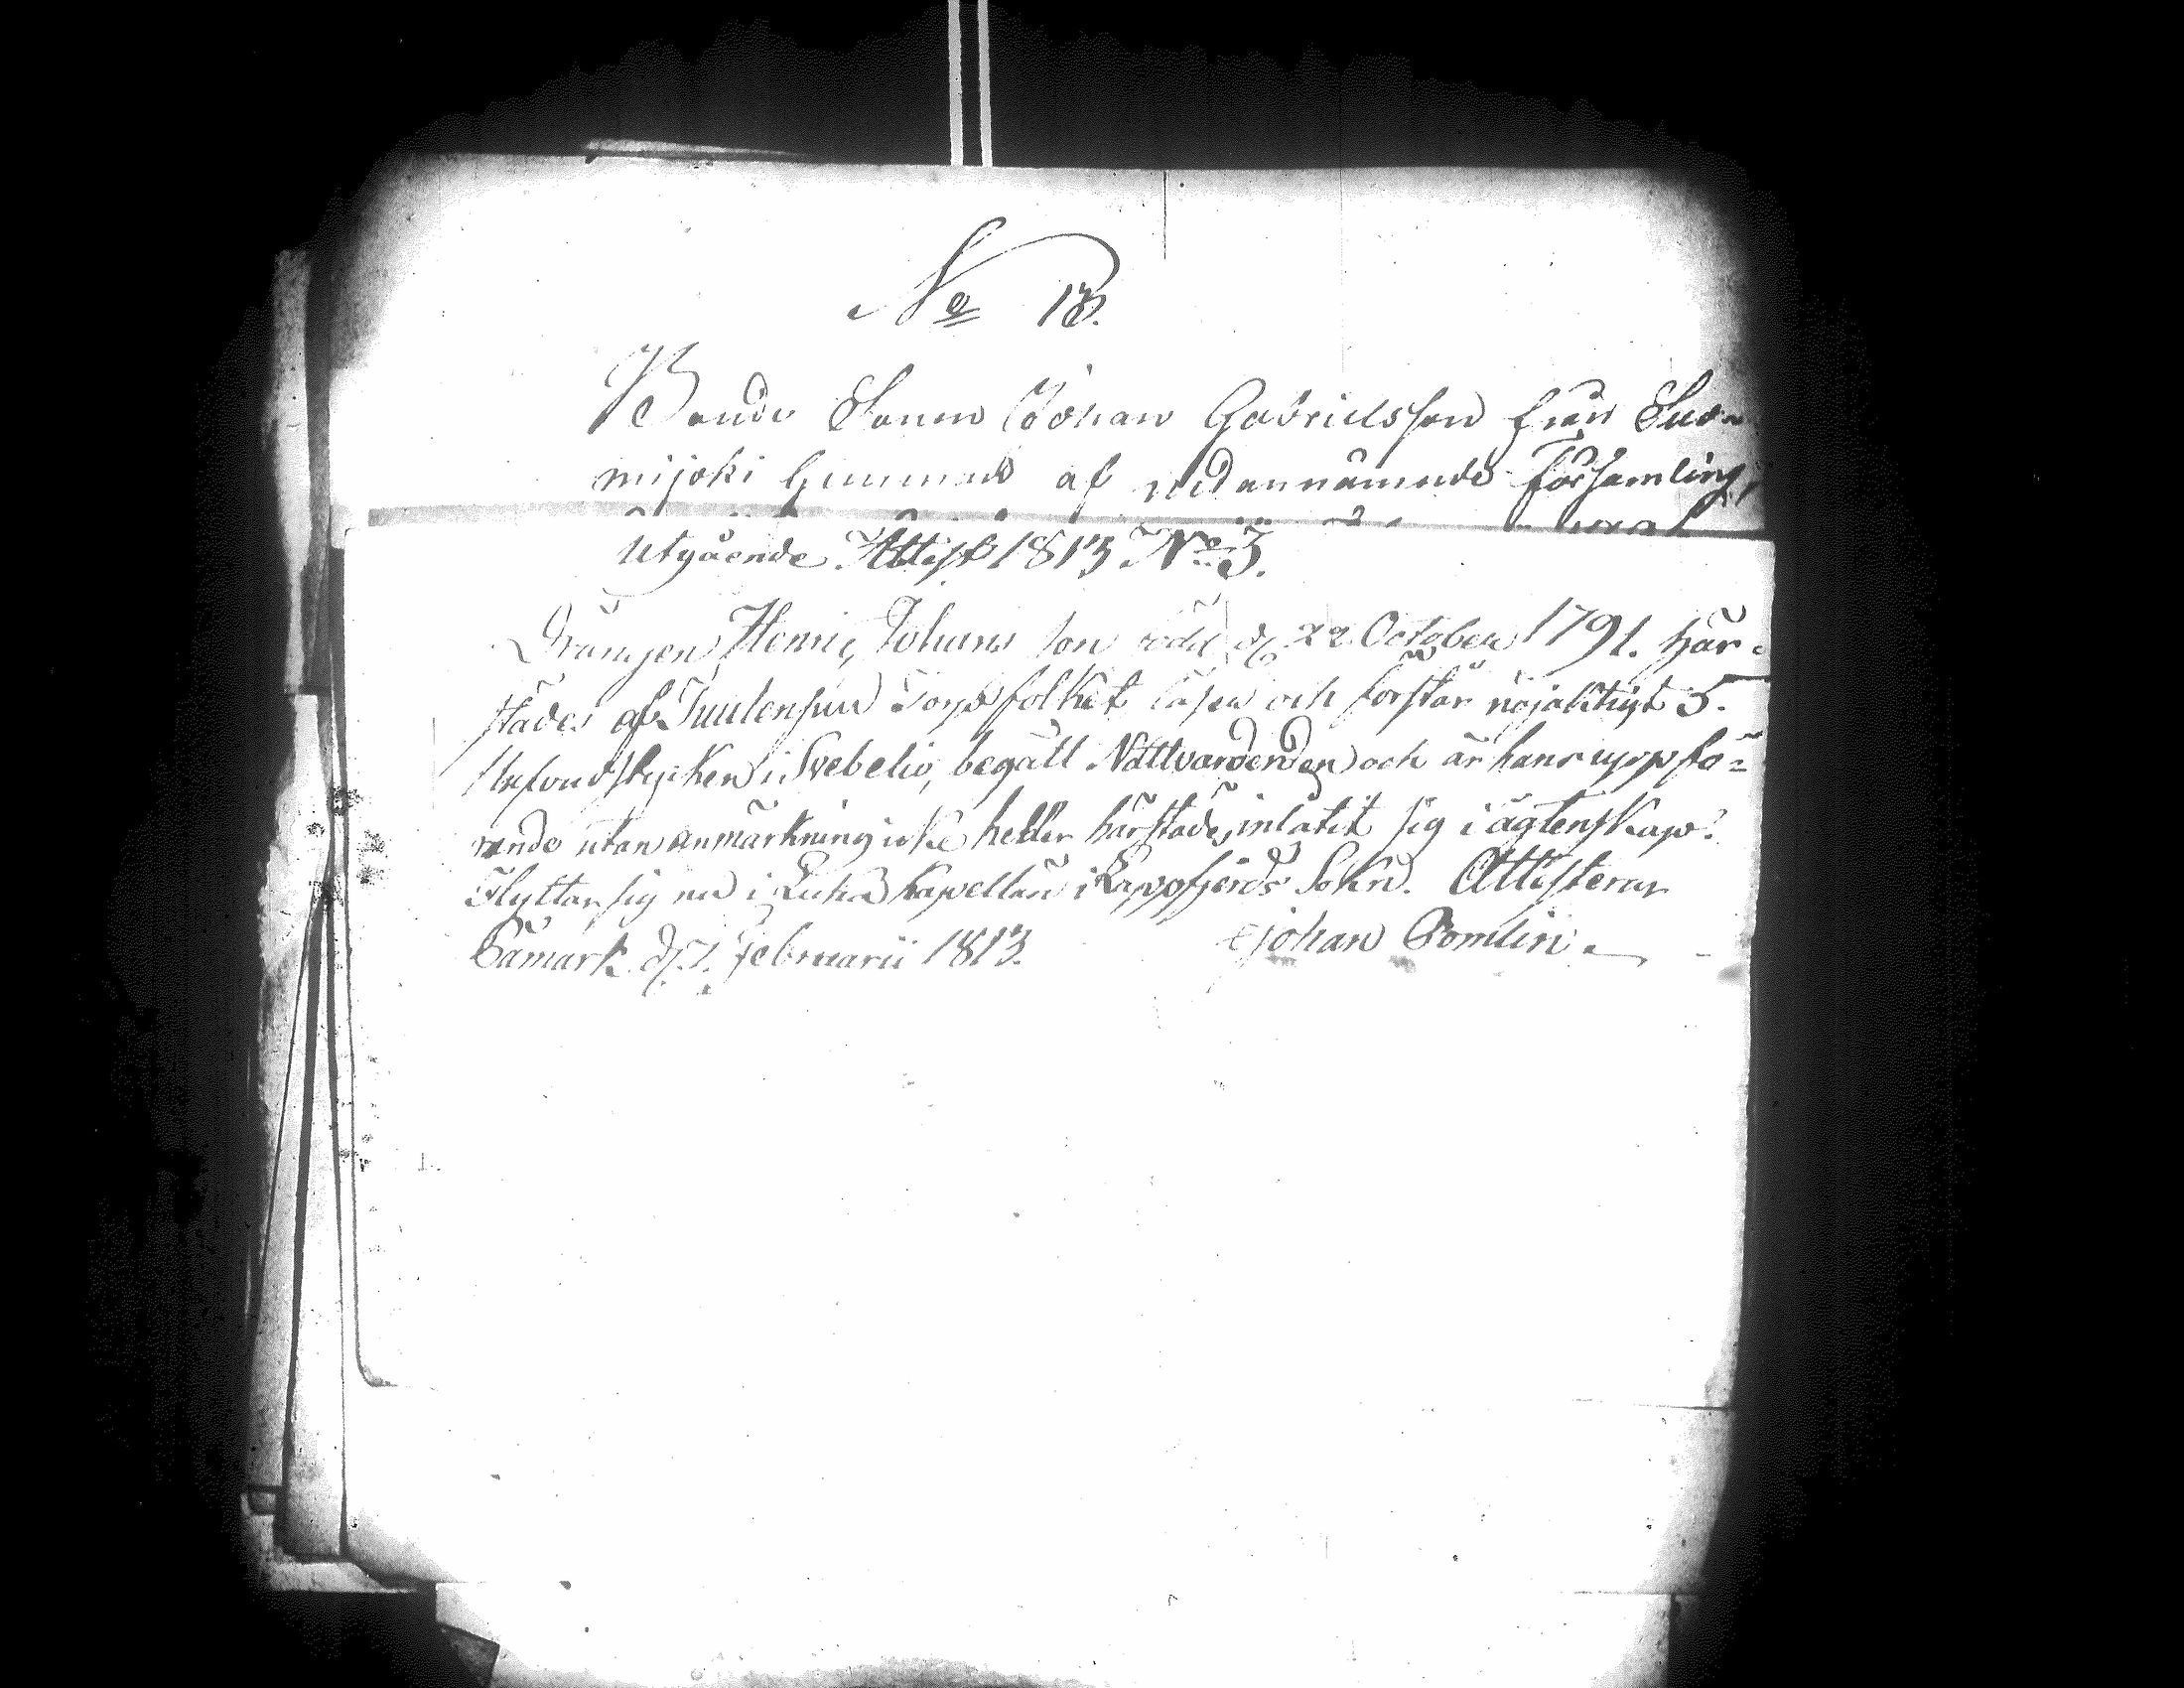 No 13.
Bonde Sonen Johan Gabrielsson från Suo-
mijoki hemman af nedannämnde Församling,
Utgående Attest 1813 No 3.
Drängen Henric Johans son född d. 22 October 1791. här-
städes af Torpfolket läser och förstår nöjaktigt 5.
i Svebelio, begått Nattvardenden och är hans uppfö=
rande utan anmärkning icke heller härstädes inlåtit sig i ägtenskap.
Flyttar sig nu i Kapellan i Lappfjerds Sokn. Attesterar
Sämark d. 7. Februarii 1813. Johan Romlin.